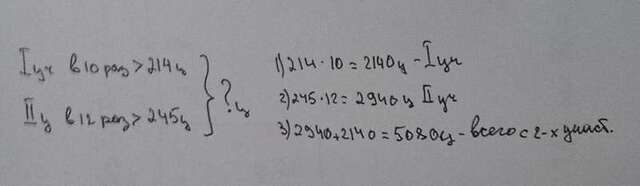 I уч в 10 раз > 214 ц
II у в 12 раз > 245 ц
} ? ц
1) 214 · 10 = 2140 ц - I уч
2) 245 · 12 = 2940 ц II уч
3) 2940 + 2140 = 5080 ц - всего с 2-х участ.